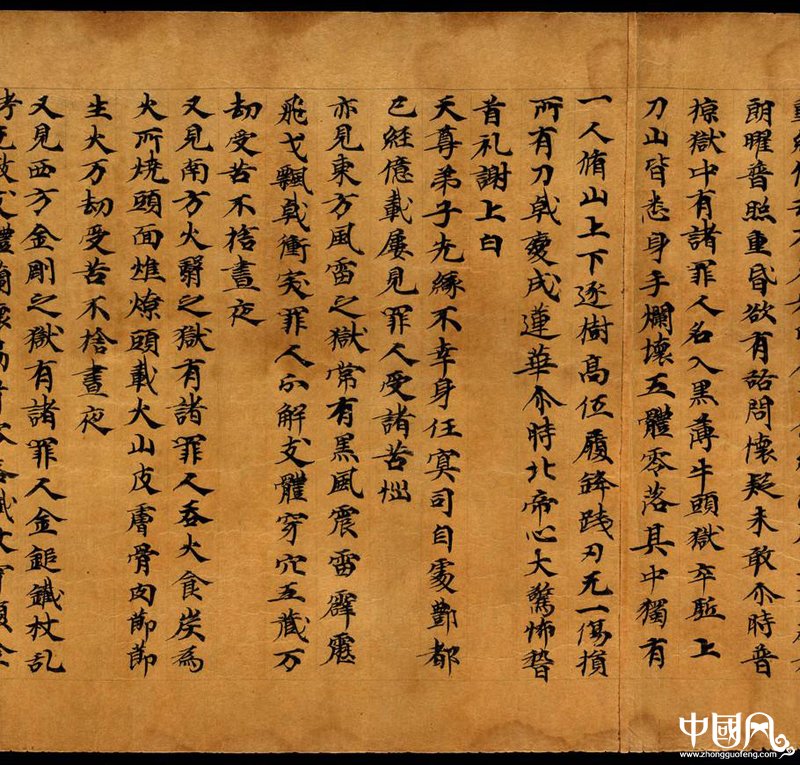 朗曜普照重昏欲有諮問懷疑未敢尒時普
掠獄中有諸罪人名入黑薄牛頭獄卒駈上
刀山皆悉身手爛壞五體零落其中獨有
一人脩山上下逐樹高伍履鋒踐刃无一傷損
所有刀戟變成蓮華尒時北帝心大驚怖稽
首礼謝上白
天尊弟子先緣不幸身任冥司自處酆都
已經億載屢見罪人受諸苦惱
亦見東方風雷之獄常有黑風震雷霹靂
飛戈飄戟衝突罪人分解支體穿穴五藏万
劫受苦不捨晝夜
又見南方火翳之獄有諸罪人吞火食炭為
火所燒頭面燋燎頭載火山皮膚骨肉節節
生火万劫受苦不捨晝夜
又見西方金剛之獄有諸罪人金鎚鐵杖乱
中國风
www.zhongguofeng.com